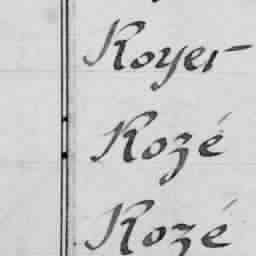 Royer
Rozé
Rozé